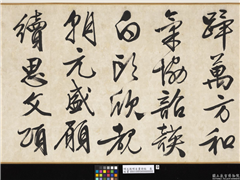 歸萬方和
氣協韶
白頭欣覩
朝元盛願
續思文頌